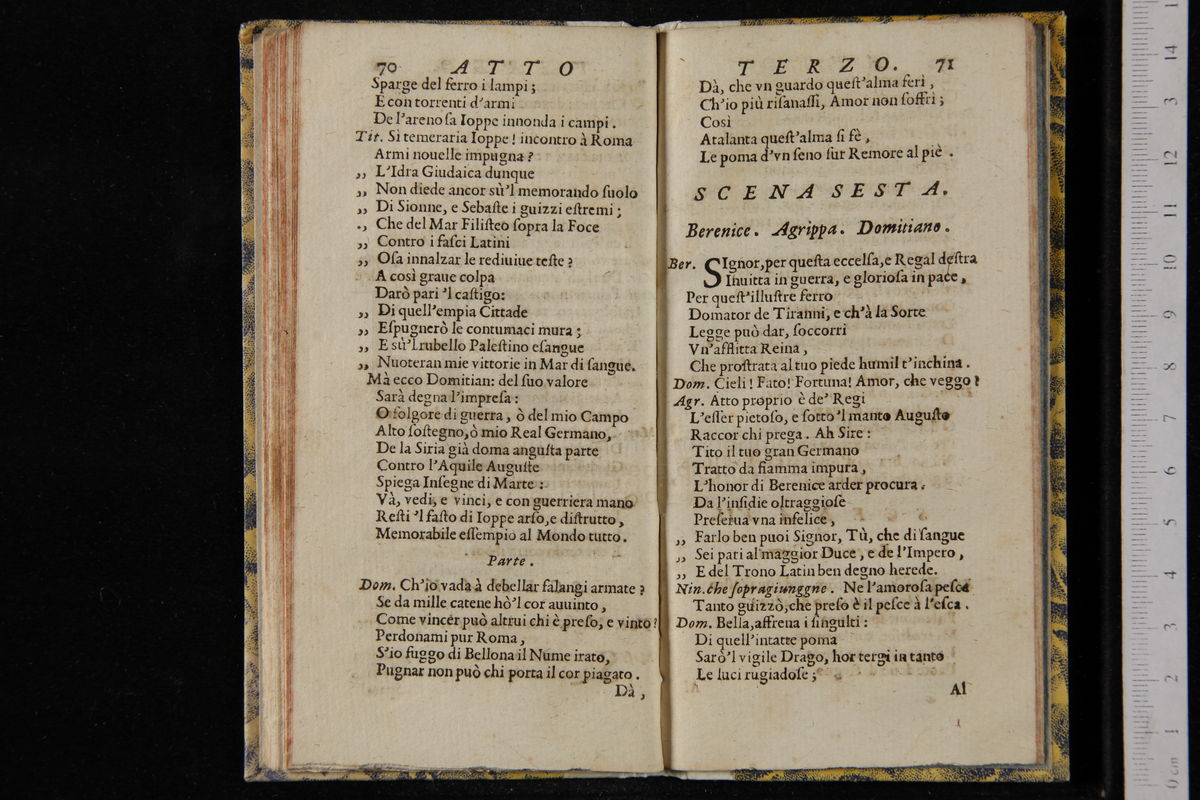 70 ATTO
Sparge del ferro i lampi ;
E con torrenti d'armi
De l'arenoſa Ioppe innonda i campi .
Tit. Si temeraria Ioppe ! incontro à Roma
Armi nouelle impugna ?
,, L'Idra Giudaica dunque
,, Non diede ancor sù'l memorando ſuolo
,, Di Sionne, e Sebaſte i guizzi eſtremi ;
., Che del Mar Filiſteo ſopra la Foce
,, Contro i faſci Latini
,, Oſa innalzar le rediuiue teſte ?
A così graue colpa
Darò pari 'l caſtigo:
,, Di quell'empia Cittade
,, Eſpugnerò le contumaci mura ;
,, E sù'l rubello Paleſtino eſangue
,, Nuoteran mie vittorie in Mar di ſangue.
Mà ecco Domitian: del ſuo valore
Sarà degna l'impreſa :
O folgore di guerra, ò del mio Campo
Alto ſoſtegno, ò mio Real Germano,
De la Siria già doma anguſta parte
Contro l'Aquile Auguſte
Spiega Inſegne di Marte :
Và, vedi, e vinci, e con guerriera mano
Reſti 'l faſto di Ioppe arſo, e diſtrutto ,
Memorabile eſſempio al Mondo tutto .
Parte .
Dom. Ch'io vada à debellar falangi armate ?
Se da mille catene hò'l cor auuinto ,
Come vincer può altrui chi è preſo, e vinto?
Perdonami pur Roma ,
S'io fuggo di Bellona il Nume irato,
Pugnar non può chi porta il cor piagato .
Dà ,
TERZO. 71
Dà, che vn guardo queſt'alma ferì ,
Ch'io più riſanaſſi, Amor non ſoffrì ;
Così
Atalanta queſt'alma ſi fè ,
Le poma d'vn ſeno fur Remore al piè .
SCENA SESTA.
Berenice. Agrippa. Domitiano.
Ber. SIgnor, per queſta eccelſa, e Regal deſtra
Inuitta in guerra, e glorioſa in pace ,
Per queſt'illuſtre ferro
Domator de Tiranni, e ch'à la Sorte
Legge può dar, ſoccorri
Vn'afflitta Reina ,
Che proſtrata al tuo piede humil t'inchina .
Dom. Cieli ! Fato! Fortuna! Amor, che veggo ?
Agr. Atto proprio è de' Regi
L'eſſer pietoſo, e ſotto 'l manto Auguſto
Raccor chi prega . Ah Sire :
Tito il tuo gran Germano
Tratto da fiamma impura ,
L'honor di Berenice arder procura .
Da l'inſidie oltraggioſe
Preſerua vna infelice ,
,, Farlo ben puoi Signor, Tù, che di ſangue
,, Sei pari al maggior Duce , e de l'Impero ,
,, E del Trono Latin ben degno herede.
Nin. che ſopragiunggne . Ne l'amoroſa peſca
Tanto guizzò, che preſo è il peſce à l'eſca .
Dom. Bella, affrena i ſingulti :
Di quell'intatte poma
Sarò'l vigile Drago, hor tergi in tanto
Le luci rugiadoſe ;
Al